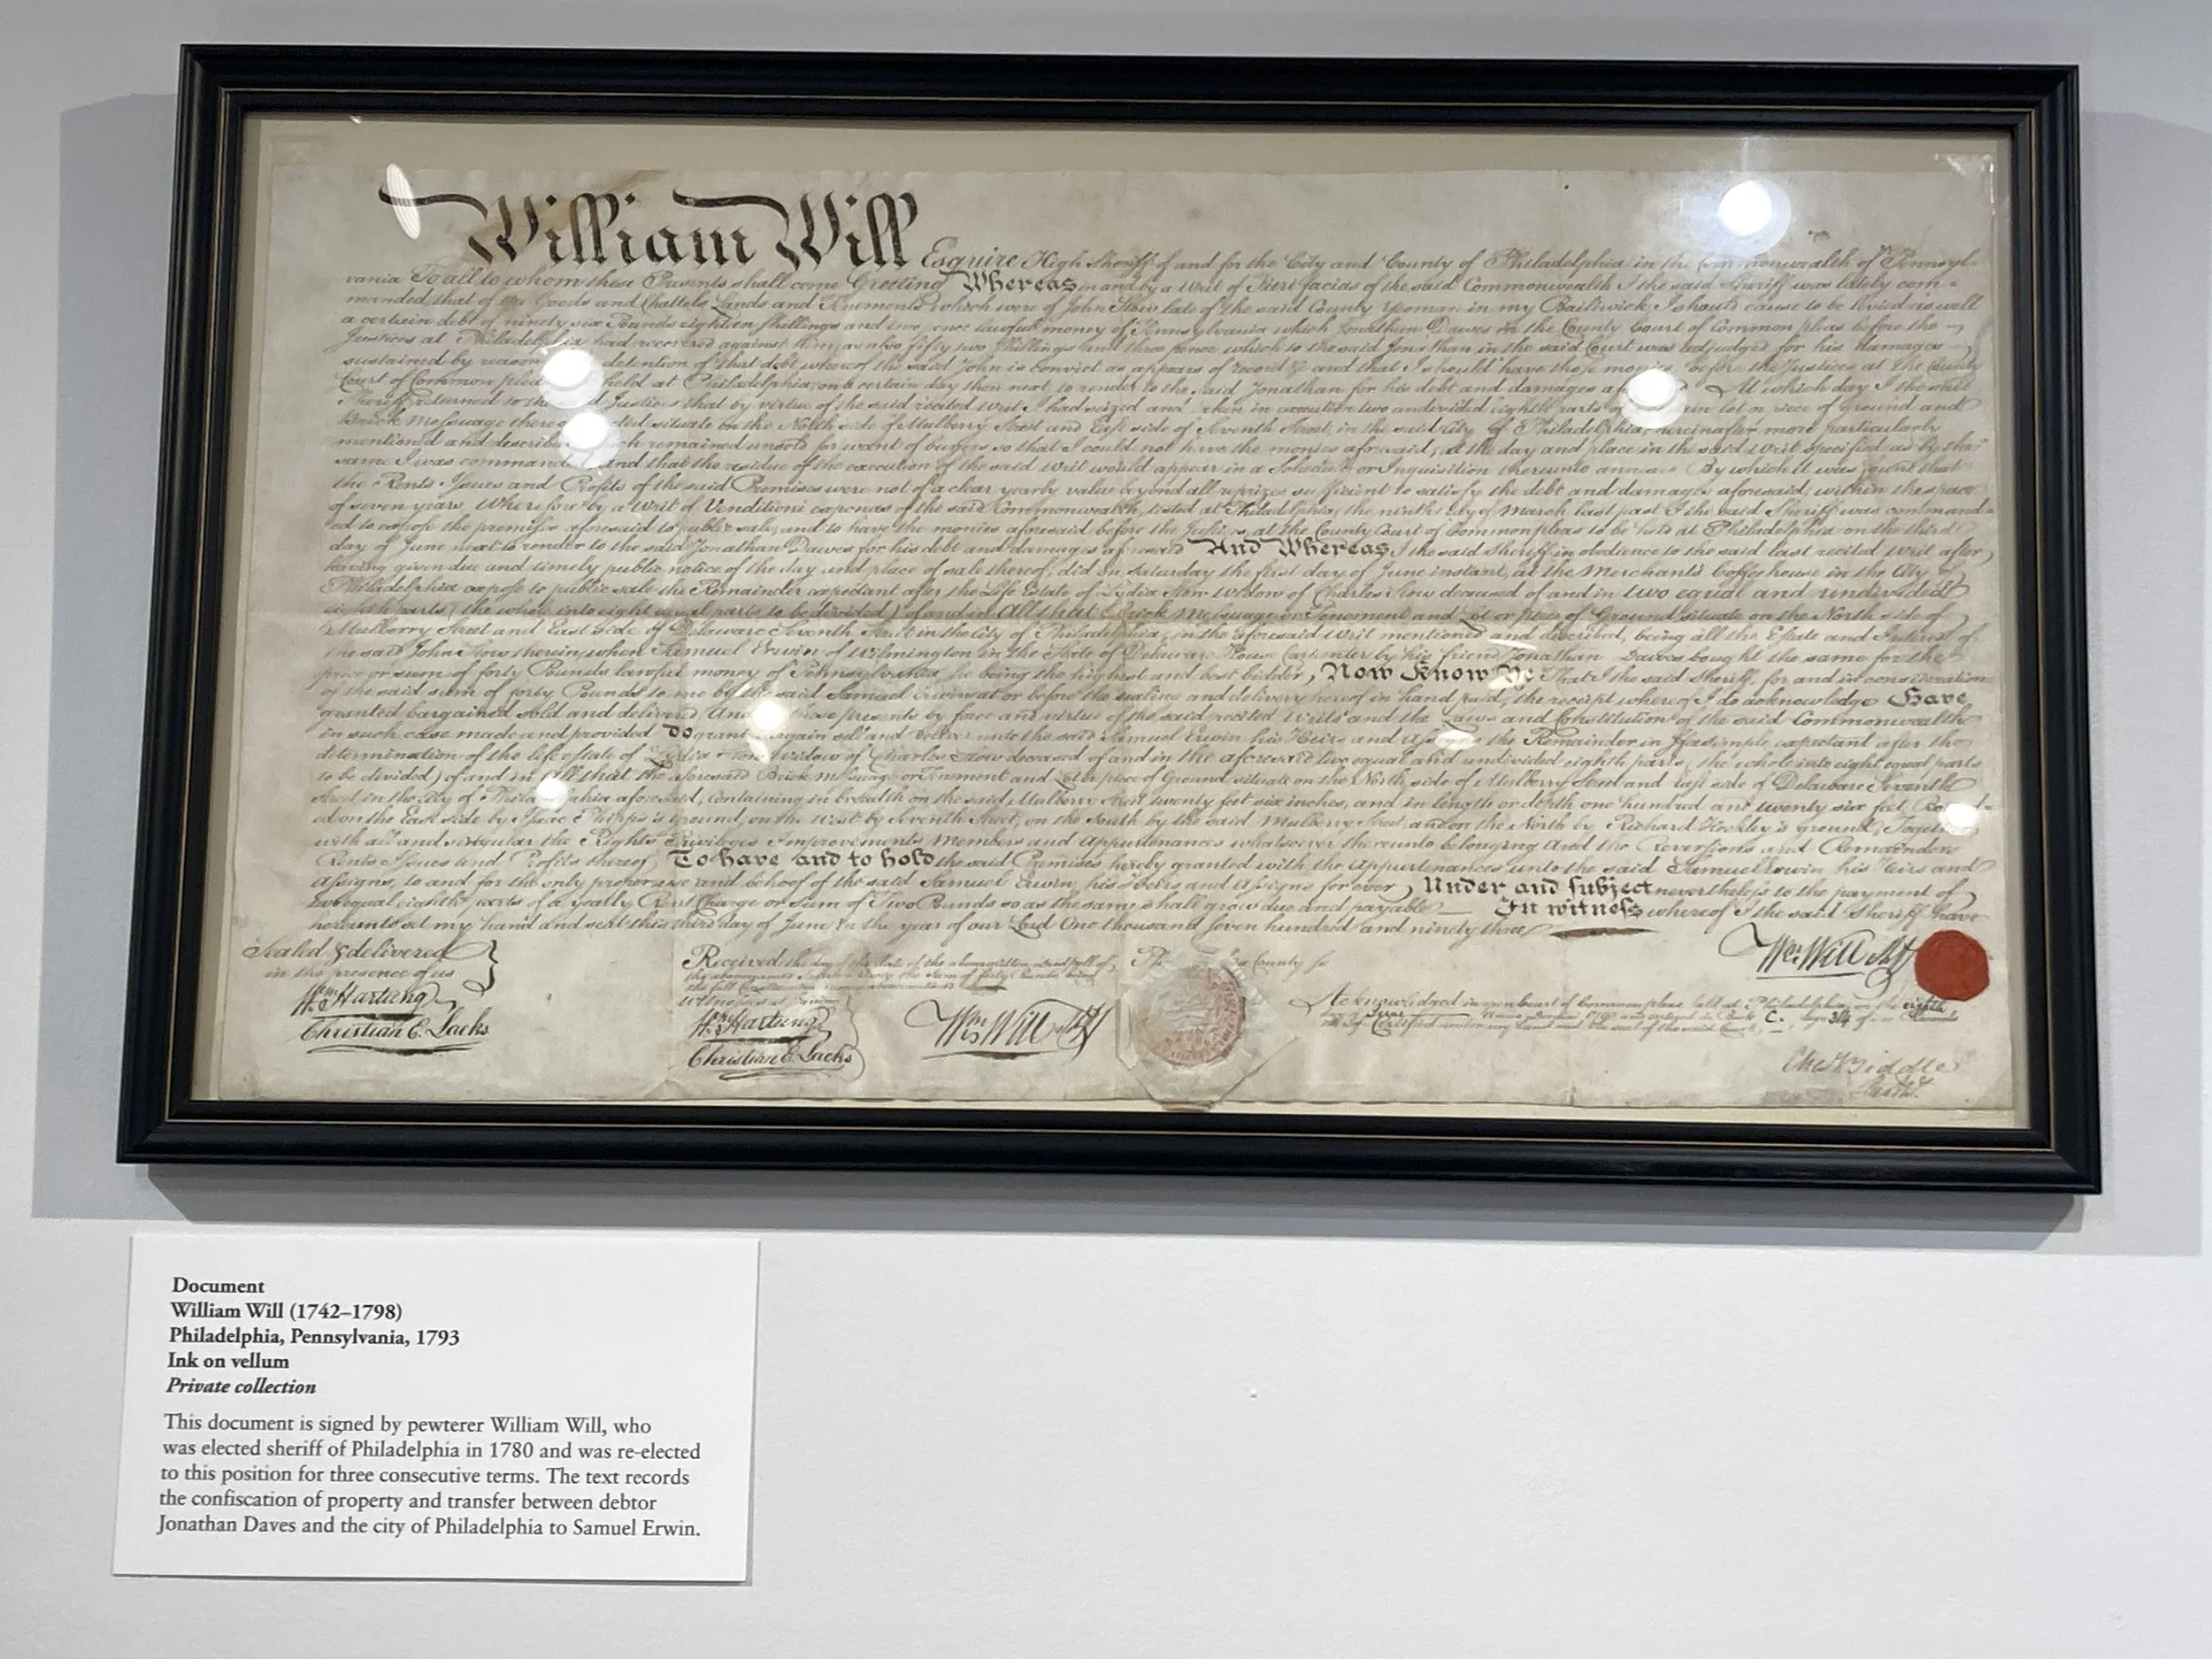 William Will Esquire High Sheriff of and for the City and County of Philadelphia in the Commonwealth of Pennsyl-
vania To all to whom these Presents shall come Greeting Whereas in and by a Writ of Fieri facias of the said Commonwealth I the said Sheriff was lately com-
manded that of the Goods and Chattels Lands and Tenements which were of John Stow late of the said County Yeoman in my Bailiwick I should cause to be levied as well
a certain debt of ninety six Pounds eighteen shillings and two pence lawful money of Pennsylvania which Jonathan Dawes in the County Court of Common pleas before the
Justices at Philadelphia had recovered against him as also fifty two shillings and three pence which to the said Jonathan in the said Court was adjudged for his damages
sustained by reason detention of that debt whereof the said John is convict as appears of record &c and that I should have those monies before the Justices at the County
Court of Common pleas held at Philadelphia on a certain day then next, to render to the said Jonathan for his debt and damages At which day I the said
Sheriff returned to the Justices that by virtue of the said recited Writ I had seized and taken in execution two undivided eighth parts of lot or piece of Ground and
Brick Messuage situate on the North side of Mulberry Street and East side of Seventh Street, in the said City of Philadelphia, hereinafter more particularly
mentioned and described which remained unsold for want of buyers so that I could not have the monies aforesaid, at the day and place in the said Writ specified as by the
same I was commanded and that the residue of the execution of the said Writ would appear in a Schedule or Inquisition thereunto annexed By which it was found that
the Rents Issues and Profits of the said Premises were not of a clear yearly value beyond all reprizes sufficient to satisfy the debt and damages aforesaid, within the space
of seven years, Wherefore by a Writ of Venditioni exponas of the said Commonwealth, tested at Philadelphia, the ninth day of March last past I the said Sheriff was command-
ed to expose the premises aforesaid to public sale, and to have the monies aforesaid before the Justices, at the County Court of Common pleas to be held at Philadelphia on the third
day of June next to render to the said Jonathan Dawes for his debt and damages aforesaid And Whereas I the said Sheriff in obedience to the said last recited Writ after
having given due and timely public notice of the day and place of sale thereof, did on Saturday the first day of June instant, at the Merchant's Coffeehouse in the City of
Philadelphia expose to public sale the Remainder expectant after the Life Estate of Lydia Stow Widow of Charles Stow deceased of and in two equal and undivided
eighth parts (the whole into eight equal parts to be divided) of and in All that Brick Messuage or Tenement and Lot or piece of Ground situate on the North side of
Mulberry Street and East side of Delaware Seventh Street in the City of Philadelphia, in the aforesaid Writ mentioned and described, being all the Estate and Interest of
the said John Stow therein, when Samuel Erwin of Wilmington in the State of Delaware House Carpenter by his friend Jonathan Dawes bought the same for the
price or sum of forty Pounds lawful money of Pennsylvania, he being the highest and best bidder, Now Know Ye That I the said Sheriff, for and in consideration
of the said sum of forty Pounds to me by the said Samuel Erwin at or before the sealing and delivery hereof in hand paid, the receipt whereof I do acknowledge Have
granted bargained sold and delivered And these presents by force and virtue of the said recited Writs and the Laws and Constitution of the said Commonwealth
in such case made and provided Do grant bargain sell and deliver unto the said Samuel Erwin his Heirs and Assigns the Remainder in fee simple expectant after the
determination of the life estate of Lydia Stow Widow of Charles Stow deceased of and in the aforesaid two equal and undivided eighth parts, the whole into eight equal parts
to be divided) of and in All that the aforesaid Brick Messuage or Tenement and Lot or piece of Ground situate on the North side of Mulberry Street and East side of Delaware Seventh
Street in the City of Philadelphia aforesaid, containing in breadth on the said Mulberry Street twenty feet six inches, and in length or depth one hundred and twenty six feet, Bound-
ed on the East side by Isaac Phipps's ground, on the West by Seventh Street, on the South by the said Mulberry Street, and on the North by Richard Hockley's ground, Together
with all and singular the Rights Privileges Improvements Members and Appurtenances whatsoever thereunto belonging and the Reversions and Remainders
Rents Issues and Profits thereof, To have and to hold the said Premises hereby granted with the Appurtenances unto the said Samuel Erwin his Heirs and
Assigns, to and for the only proper use and behoof of the said Samuel Erwin, his Heirs and Assigns for ever, Under and subject nevertheless to the payment of
two equal eighth parts of a yearly Rent Charge or sum of Two Pounds so as the same shall grow due and payable In witness whereof I the said Sheriff have
hereunto set my hand and seal this third day of June, in the year of our Lord One thousand seven hundred and ninety three
Sealed & delivered
in the presence of us
Wm Hartung
Christian E. Lacks
Received the day of the date of the abovewritten Deed poll of
the abovenamed Samuel Erwin the sum of forty Pounds being
the full Consideration money abovementioned
Witnesses at signing
Wm Hartung
Christian E. Lacks
Wm Will Shff
County ss
Wm Will Shff
Acknowledged in open Court of Common pleas held at Philadelphia on the eighth
day of June Anno Domini 1793 and entered in Book C. page 314 of the Records
Certified under my Hand and the seal of the said Court
Chas Biddle
Document
William Will (1742–1798)
Philadelphia, Pennsylvania, 1793
Ink on vellum
Private collection
This document is signed by pewterer William Will, who
was elected sheriff of Philadelphia in 1780 and was re-elected
to this position for three consecutive terms. The text records
the confiscation of property and transfer between debtor
Jonathan Daves and the city of Philadelphia to Samuel Erwin.